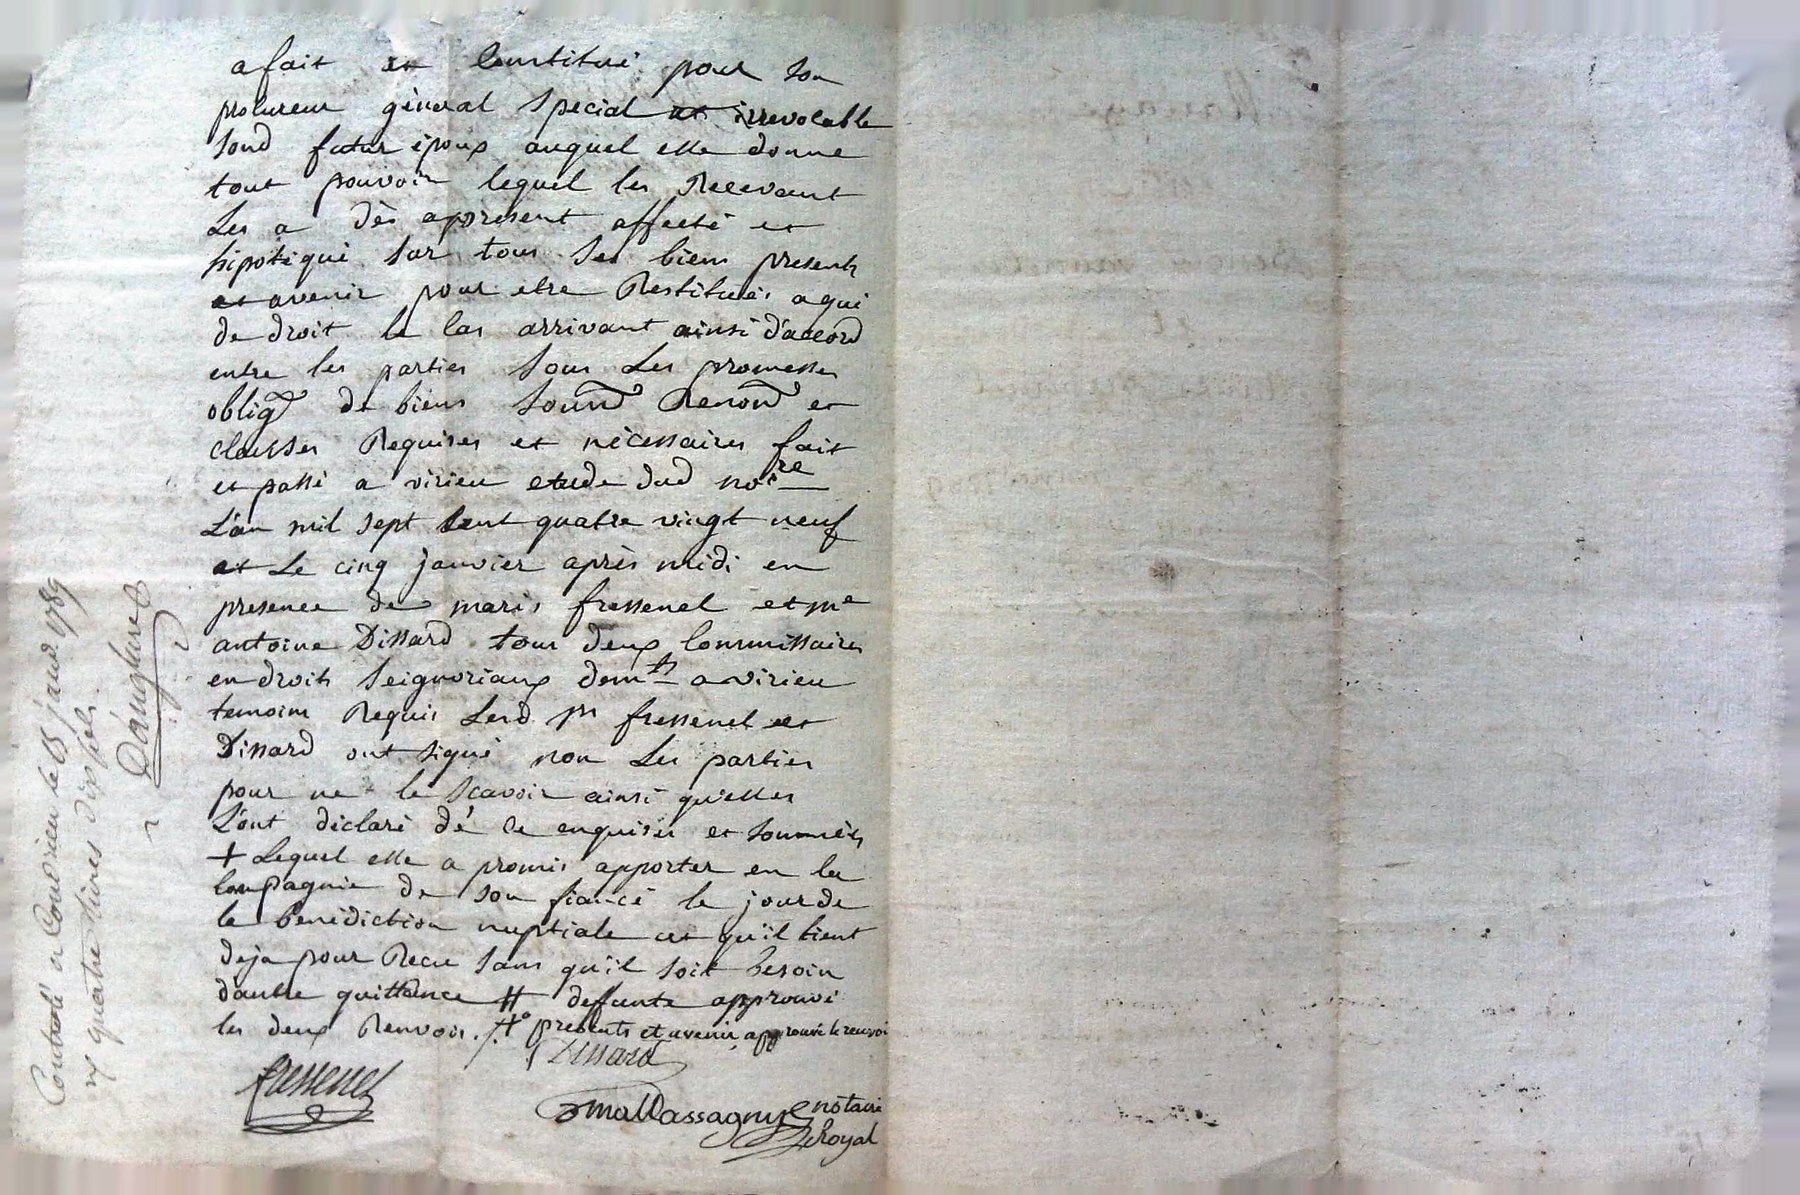 a fait et Constitué pour son
procureur général special et irrevocable
sond futur époux auquel elle donne
tout pouvoir lequel les Recevant
Les a dès apprésent affecté et
hipotéqué sur tous ses biens presents
et avenir pour etre Restitués a qui
de droit le cas arrivant ainsi d'accord
entre les parties sous Les promesses
obligõn de biens soumõn Renonõn et
clauses Requises et nécessaires fait
et passé a virieu etude dud no.re
L'an mil sept cent quatre vingt neuf
et Le cinq janvier après midi en
presence de maris fressenel et me
antoine Dissard tous deux Commissaires
en droits seignoriaux demts a virieu
temoins Requis Lesd srs fressenel et
Dissard ont signé non Les parties
pour ne le scavoir ainsi qu'elles
L'ont déclaré dé ce enquises et sommées
+ Lequel elle a promis apporter en la
Compagnie de son fiancé le jour de
la bénédiction nuptiale et qu'il tient
deja pour Recu sans qu'il soit besoin
d'autre quittance # defunte approuvé
les deux Renvois. #° presents et avenir approuvé le renvoi
Dissard
fressenel
notaire
Royal
Controlé a Condrieu le 15 janv 1789
quatre livres dix sols